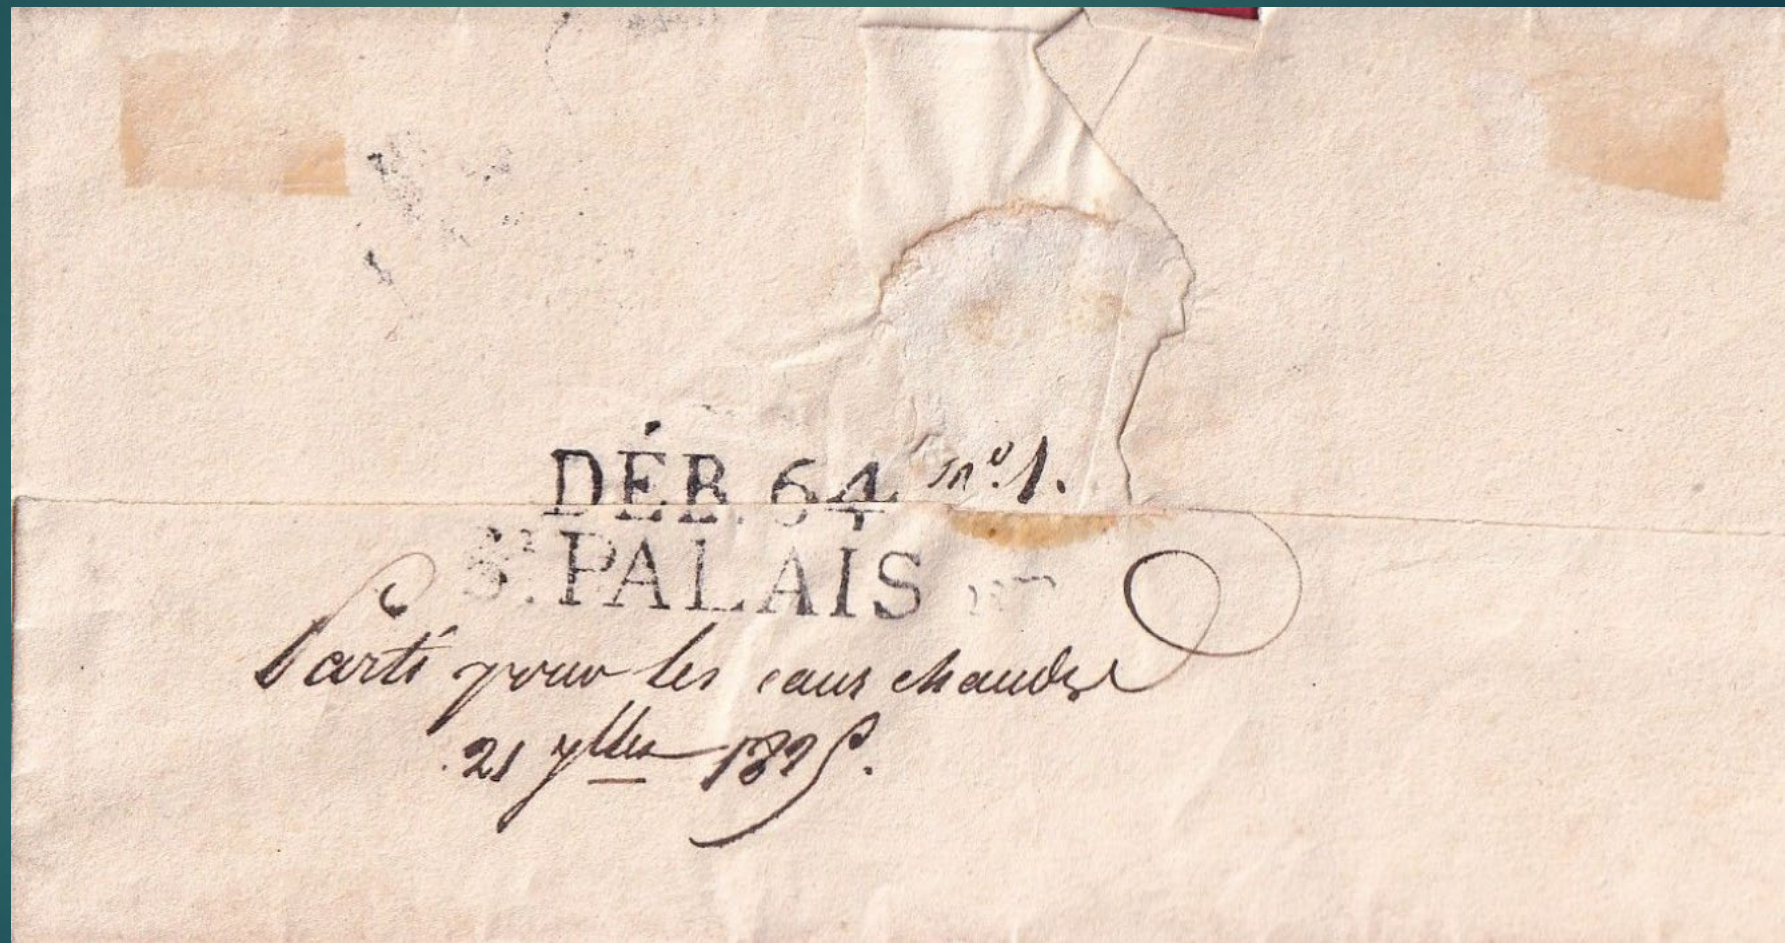 DÉB. 64 nº. 1.
Sᵗ. PALAIS
Parti pour les eaux chaudes
21 7bre 1825.